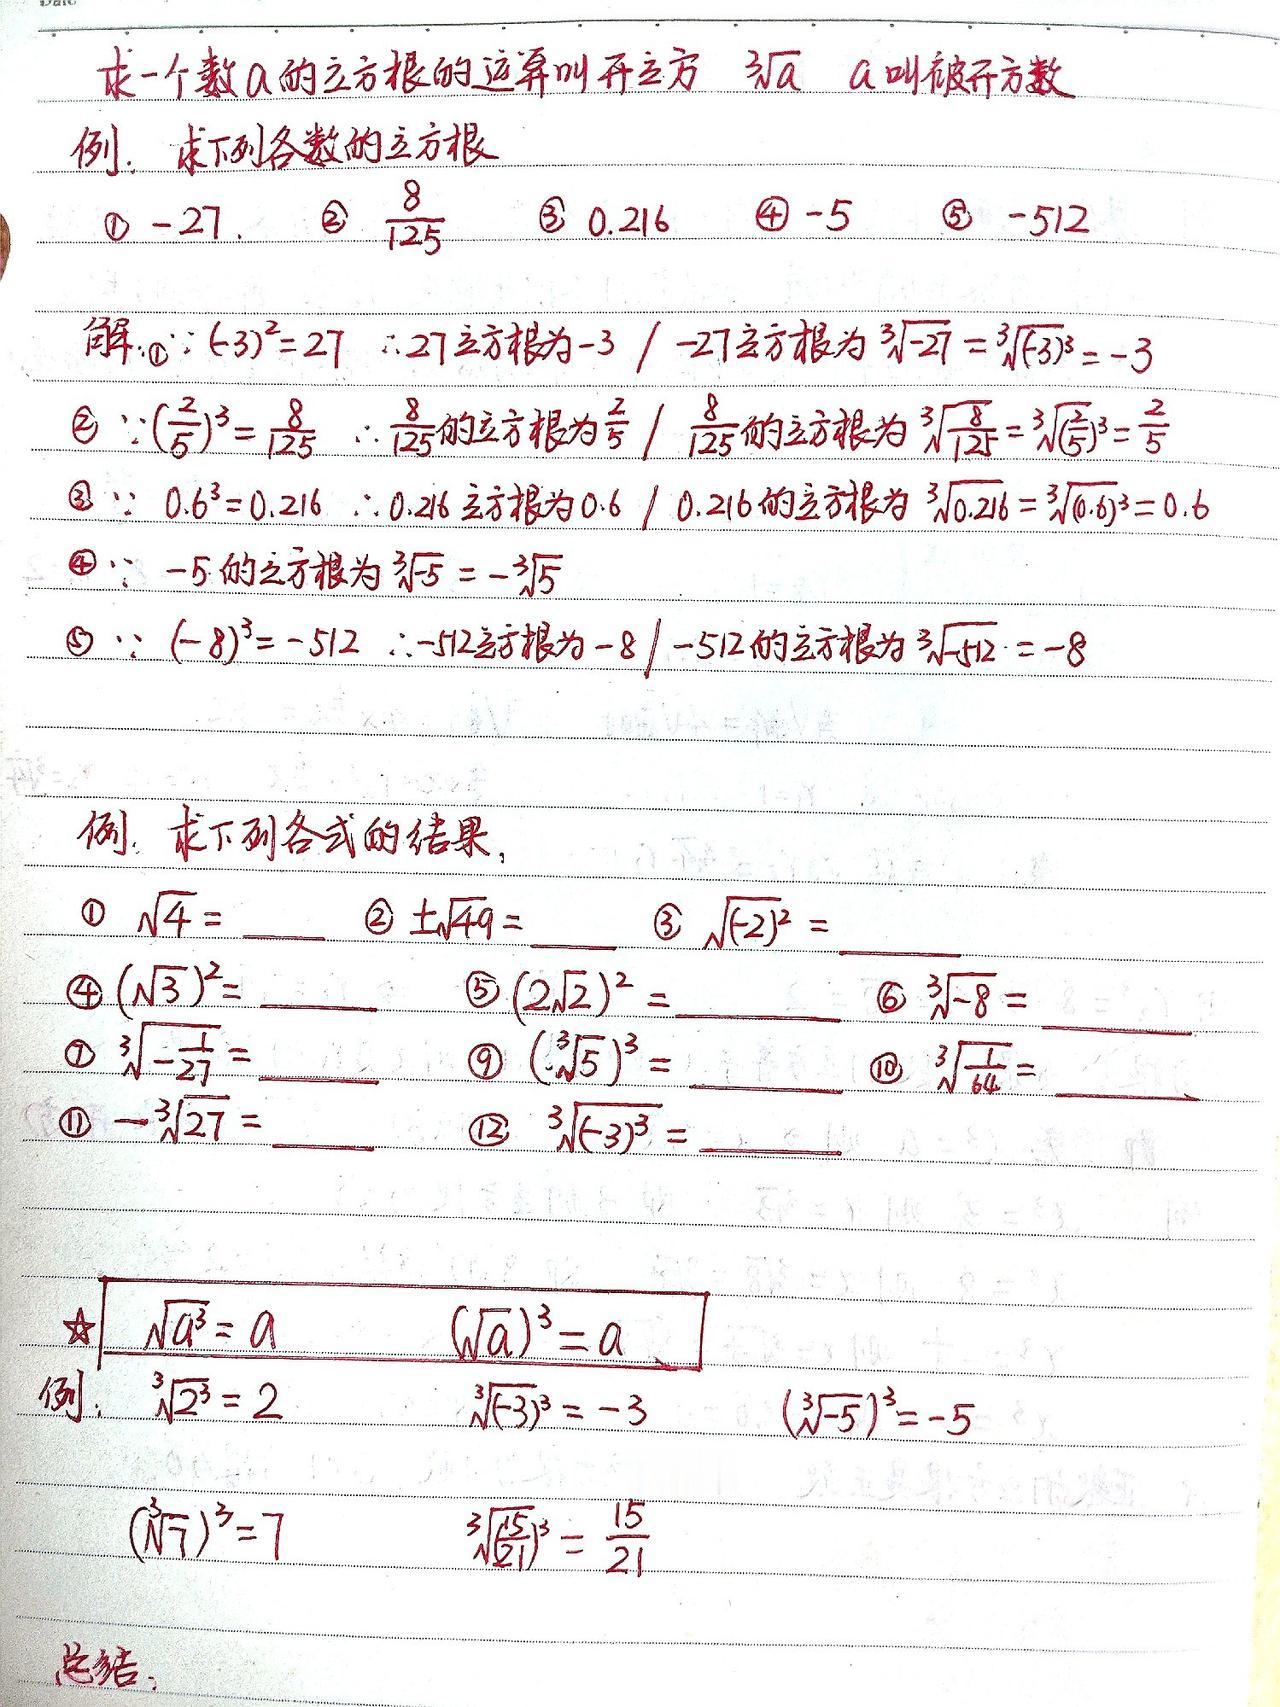 求一个数a的立方根的运算叫开立方 ∛a a叫被开方数
例. 求下列各数的立方根
① -27. ② 8/125 ③ 0.216 ④ -5 ⑤ -512
解.① ∵ (-3)²=27 ∴27立方根为-3 / -27立方根为 ∛-27 = ∛(-3)³ = -3
② ∵(2/5)³ = 8/125 ∴ 8/125的立方根为2/5 / 8/125的立方根为 ∛8/125 = ∛(2/5)³ = 2/5
③ ∵ 0.6³=0.216 ∴0.216立方根为0.6 / 0.216的立方根为 ∛0.216 = ∛(0.6)³ = 0.6
④ ∵ -5的立方根为 ∛-5 = -∛5
⑤ ∵ (-8)³=-512 ∴-512立方根为-8 / -512的立方根为 ∛-512 = -8
例. 求下列各式的结果,
① √4 = ____ ② ±√49 = ____ ③ √(-2)² = ____
④ (√3)² = ____ ⑤ (2√2)² = ____ ⑥ ∛-8 = ____
⑦ ∛-1/27 = ____ ⑨ (∛5)³ = ____ ⑩ ∛1/64 = ____
⑪ -∛27 = ____ ⑫ ∛(-3)³ = ____
☆ √a³ = a (√a)³ = a
例. ∛2³ = 2 ∛(-3)³ = -3 (∛-5)³ = -5
(∛7)³ = 7 ∛(15/21)³ = 15/21
总结: